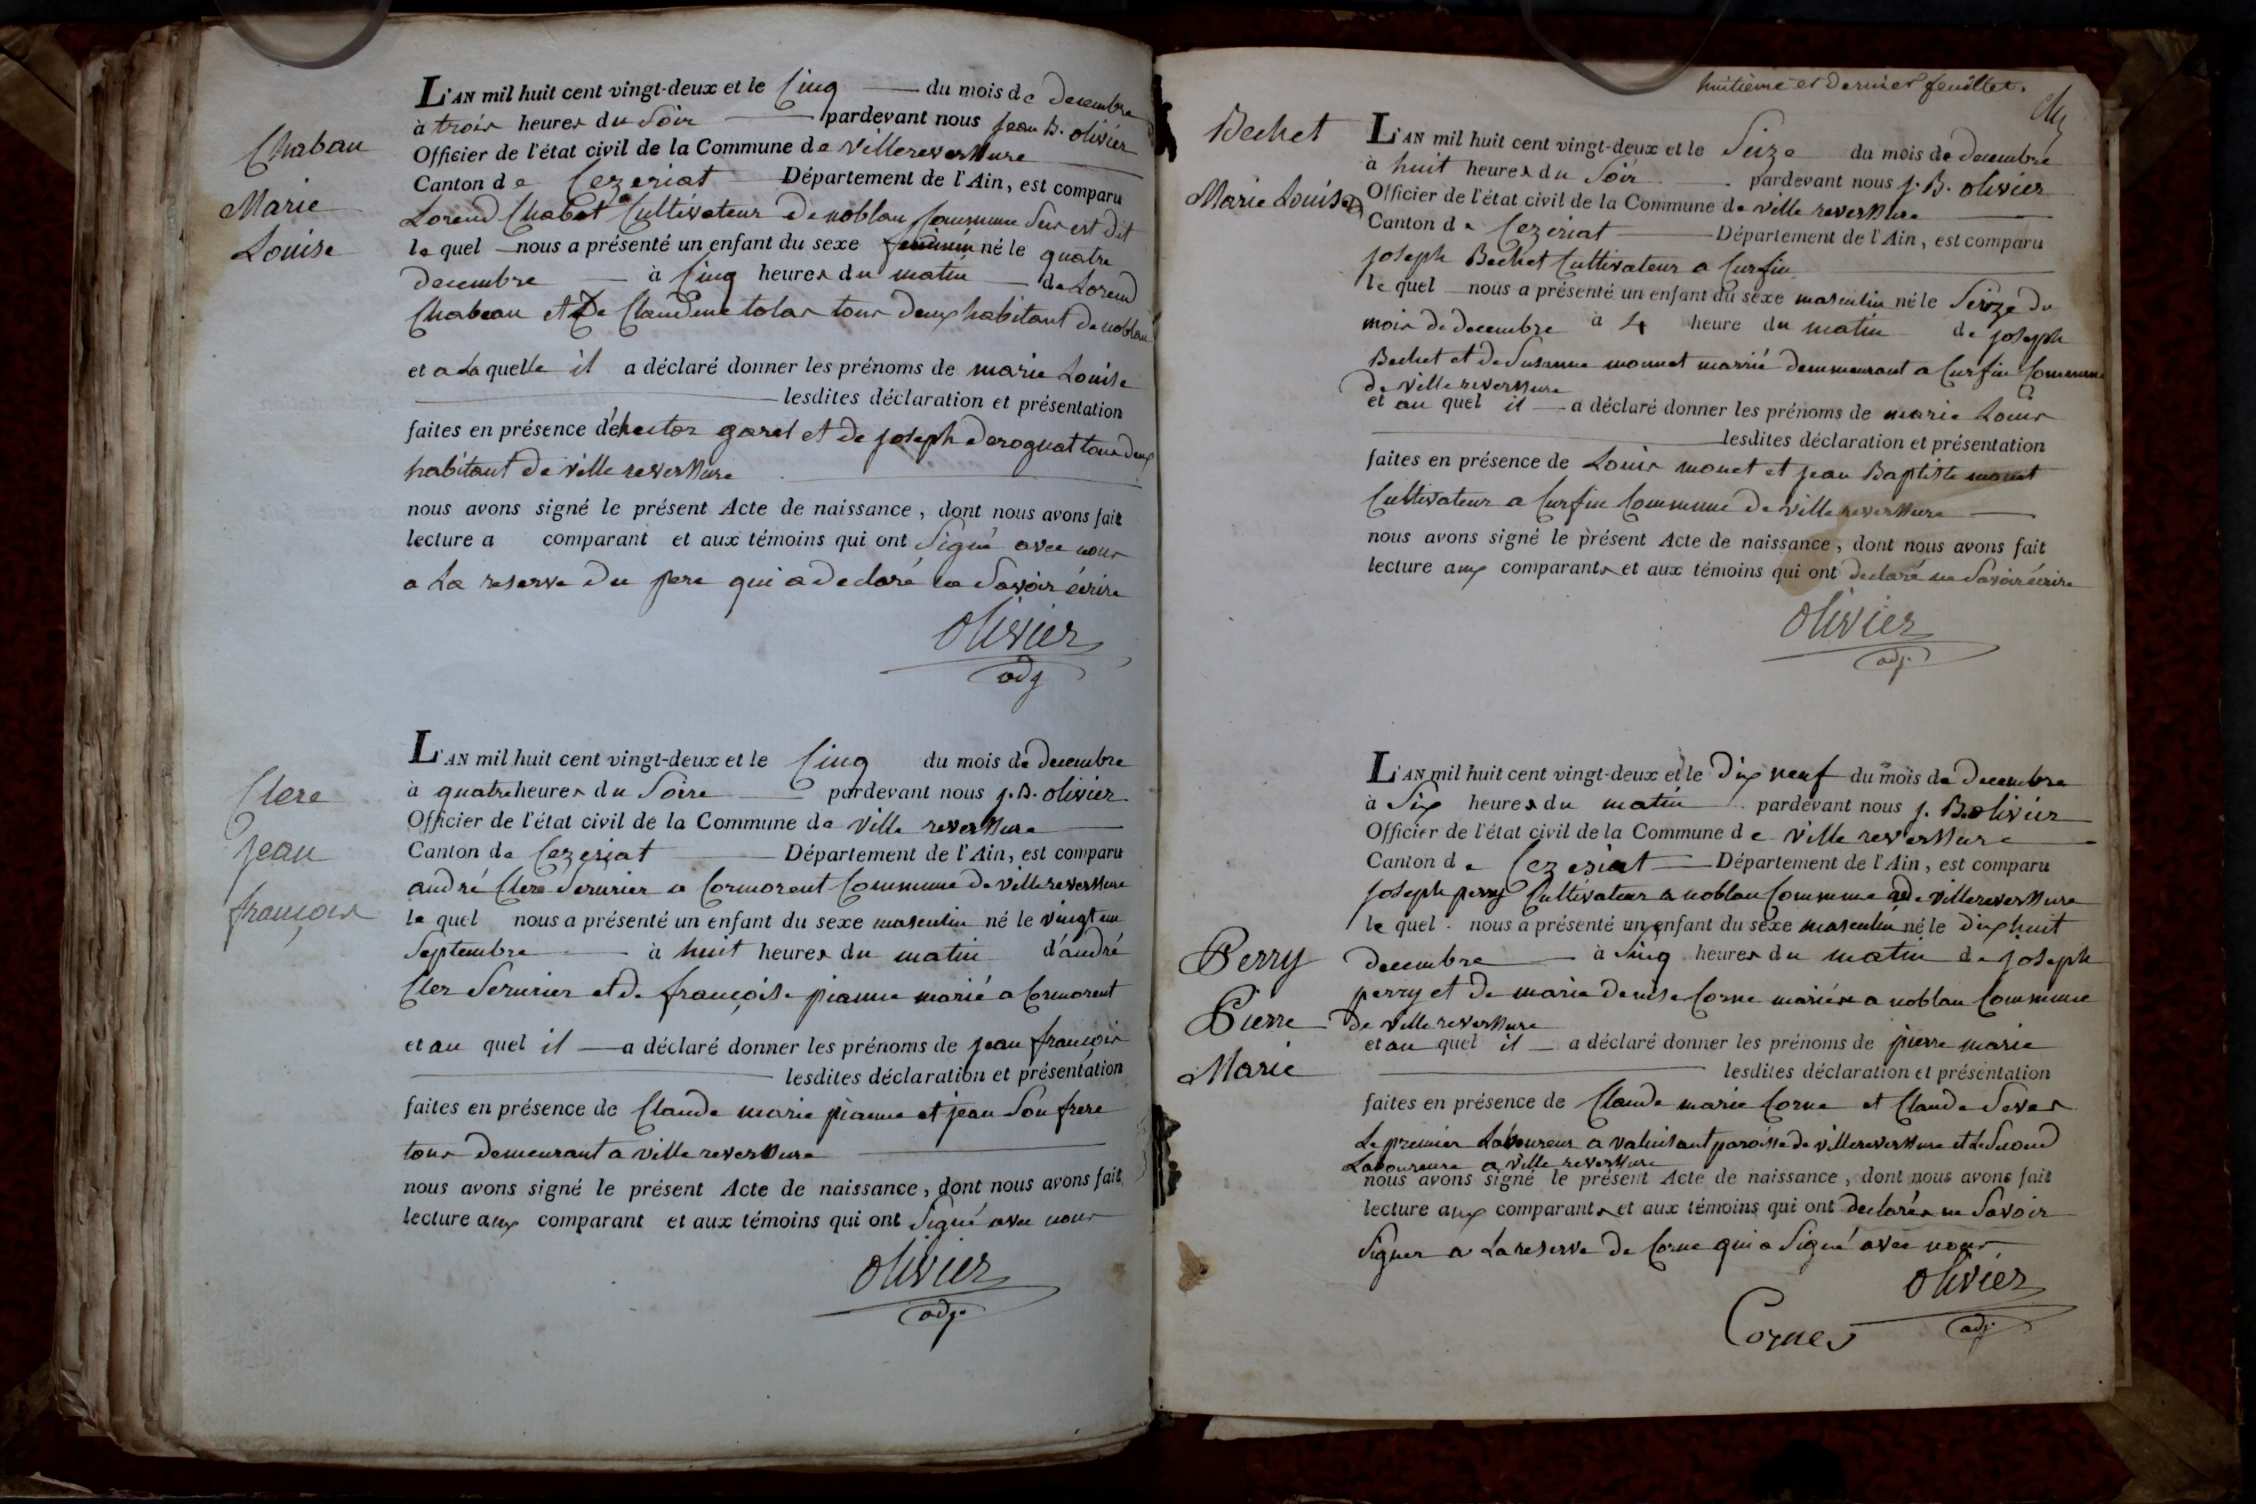 Chabau
Marie
Louise
L'AN mil huit cent vingt-deux et le Cinq du mois de decembre
à trois heures du Soir pardevant nous Jean B. olivier
Officier de l'état civil de la Commune de villereversure
Canton de Cezeriat Département de l'Ain, est comparu
Lorend Chabot Cultivateur de noblau Commune Sus est dit
le quel nous a présenté un enfant du sexe feminin né le quatre
decembre à Cinq heures du matin de Lorend
Chabeau et De Claudine tolas tous deux habitant de noblau
et a La quelle il a déclaré donner les prénoms de marie Louise
lesdites déclaration et présentation
faites en présence d'hector garel et de joseph deroguat tous deux
habitant de ville reversure
nous avons signé le présent Acte de naissance, dont nous avons fait
lecture a comparant et aux témoins qui ont Signé avec nous
a La reserve du pere qui a declaré Savoir écrire
olivier
adj
Clere
Jean
françois
L'AN mil huit cent vingt-deux et le Cinq du mois de decembre
à quatre heures du Soire pardevant nous j. B. olivier
Officier de l'état civil de la Commune de ville reversure
Canton de Cezeriat Département de l'Ain, est comparu
andré Clere Serurier a Cormorent Commune de villereversure
le quel nous a présenté un enfant du sexe masculin né le vingt un
Septembre à huit heures du matin d'andré
Cler Serurier et de françoise pianne marié a Cormorent
et au quel il a déclaré donner les prénoms de jean françois
lesdites déclaration et présentation
faites en présence de Claude marie pianne et jean Son frere
tous demeurant a ville reversure
nous avons signé le présent Acte de naissance, dont nous avons fait
lecture aux comparant et aux témoins qui ont Signé avec nous
olivier
adj.
huitième et dernier feuillet.
Bechet
Marie Louis
L'AN mil huit cent vingt-deux et le Seize du mois de decembre
à huit heures du Soir pardevant nous j. B. olivier
Officier de l'état civil de la Commune de ville reversure
Canton de Cezeriat Département de l'Ain, est comparu
joseph Bechet Cultivateur a Curfin
le quel nous a présenté un enfant du sexe masculin né le Seize du
mois de decembre à 4 heure du matin de joseph
Bechet et de Susanne monnet marrié demmeurant a Curfin Commune
de ville reversure
et au quel il a déclaré donner les prénoms de marie Louis
lesdites déclaration et présentation
faites en présence de Louis monet et jean Baptiste monet
Cultivateur a Curfin Commune de ville reversure
nous avons signé le présent Acte de naissance, dont nous avons fait
lecture aux comparants et aux témoins qui ont declaré ne Savoir écrire
olivier
adj.
Perry
Pierre
Marie
L'AN mil huit cent vingt-deux et le dix neuf du mois de decembre
à Six heures du matin pardevant nous j. B. olivier
Officier de l'état civil de la Commune de ville reversure
Canton de Cezeriat Département de l'Ain, est comparu
joseph perry Cultivateur a noblau Commune de villereversure
le quel nous a présenté un enfant du sexe masculin né le dix huit
decembre à Sinq heures du matin de joseph
perry et de marie denise Corne mariés a noblau Commune
de ville reversure
et au quel il a déclaré donner les prénoms de pierre marie
lesdites déclaration et présentation
faites en présence de Claude marie Corne et Claude Seves
Le premier Laboureur a valuisant paroisse de villereversure et Le Second
Laboureure a ville reversure
nous avons signé le présent Acte de naissance, dont nous avons fait
lecture aux comparants et aux témoins qui ont declarés ne Savoir
Signer a La reserve de Corne qui a Signé avec nous
olivier
adj.
Cornes